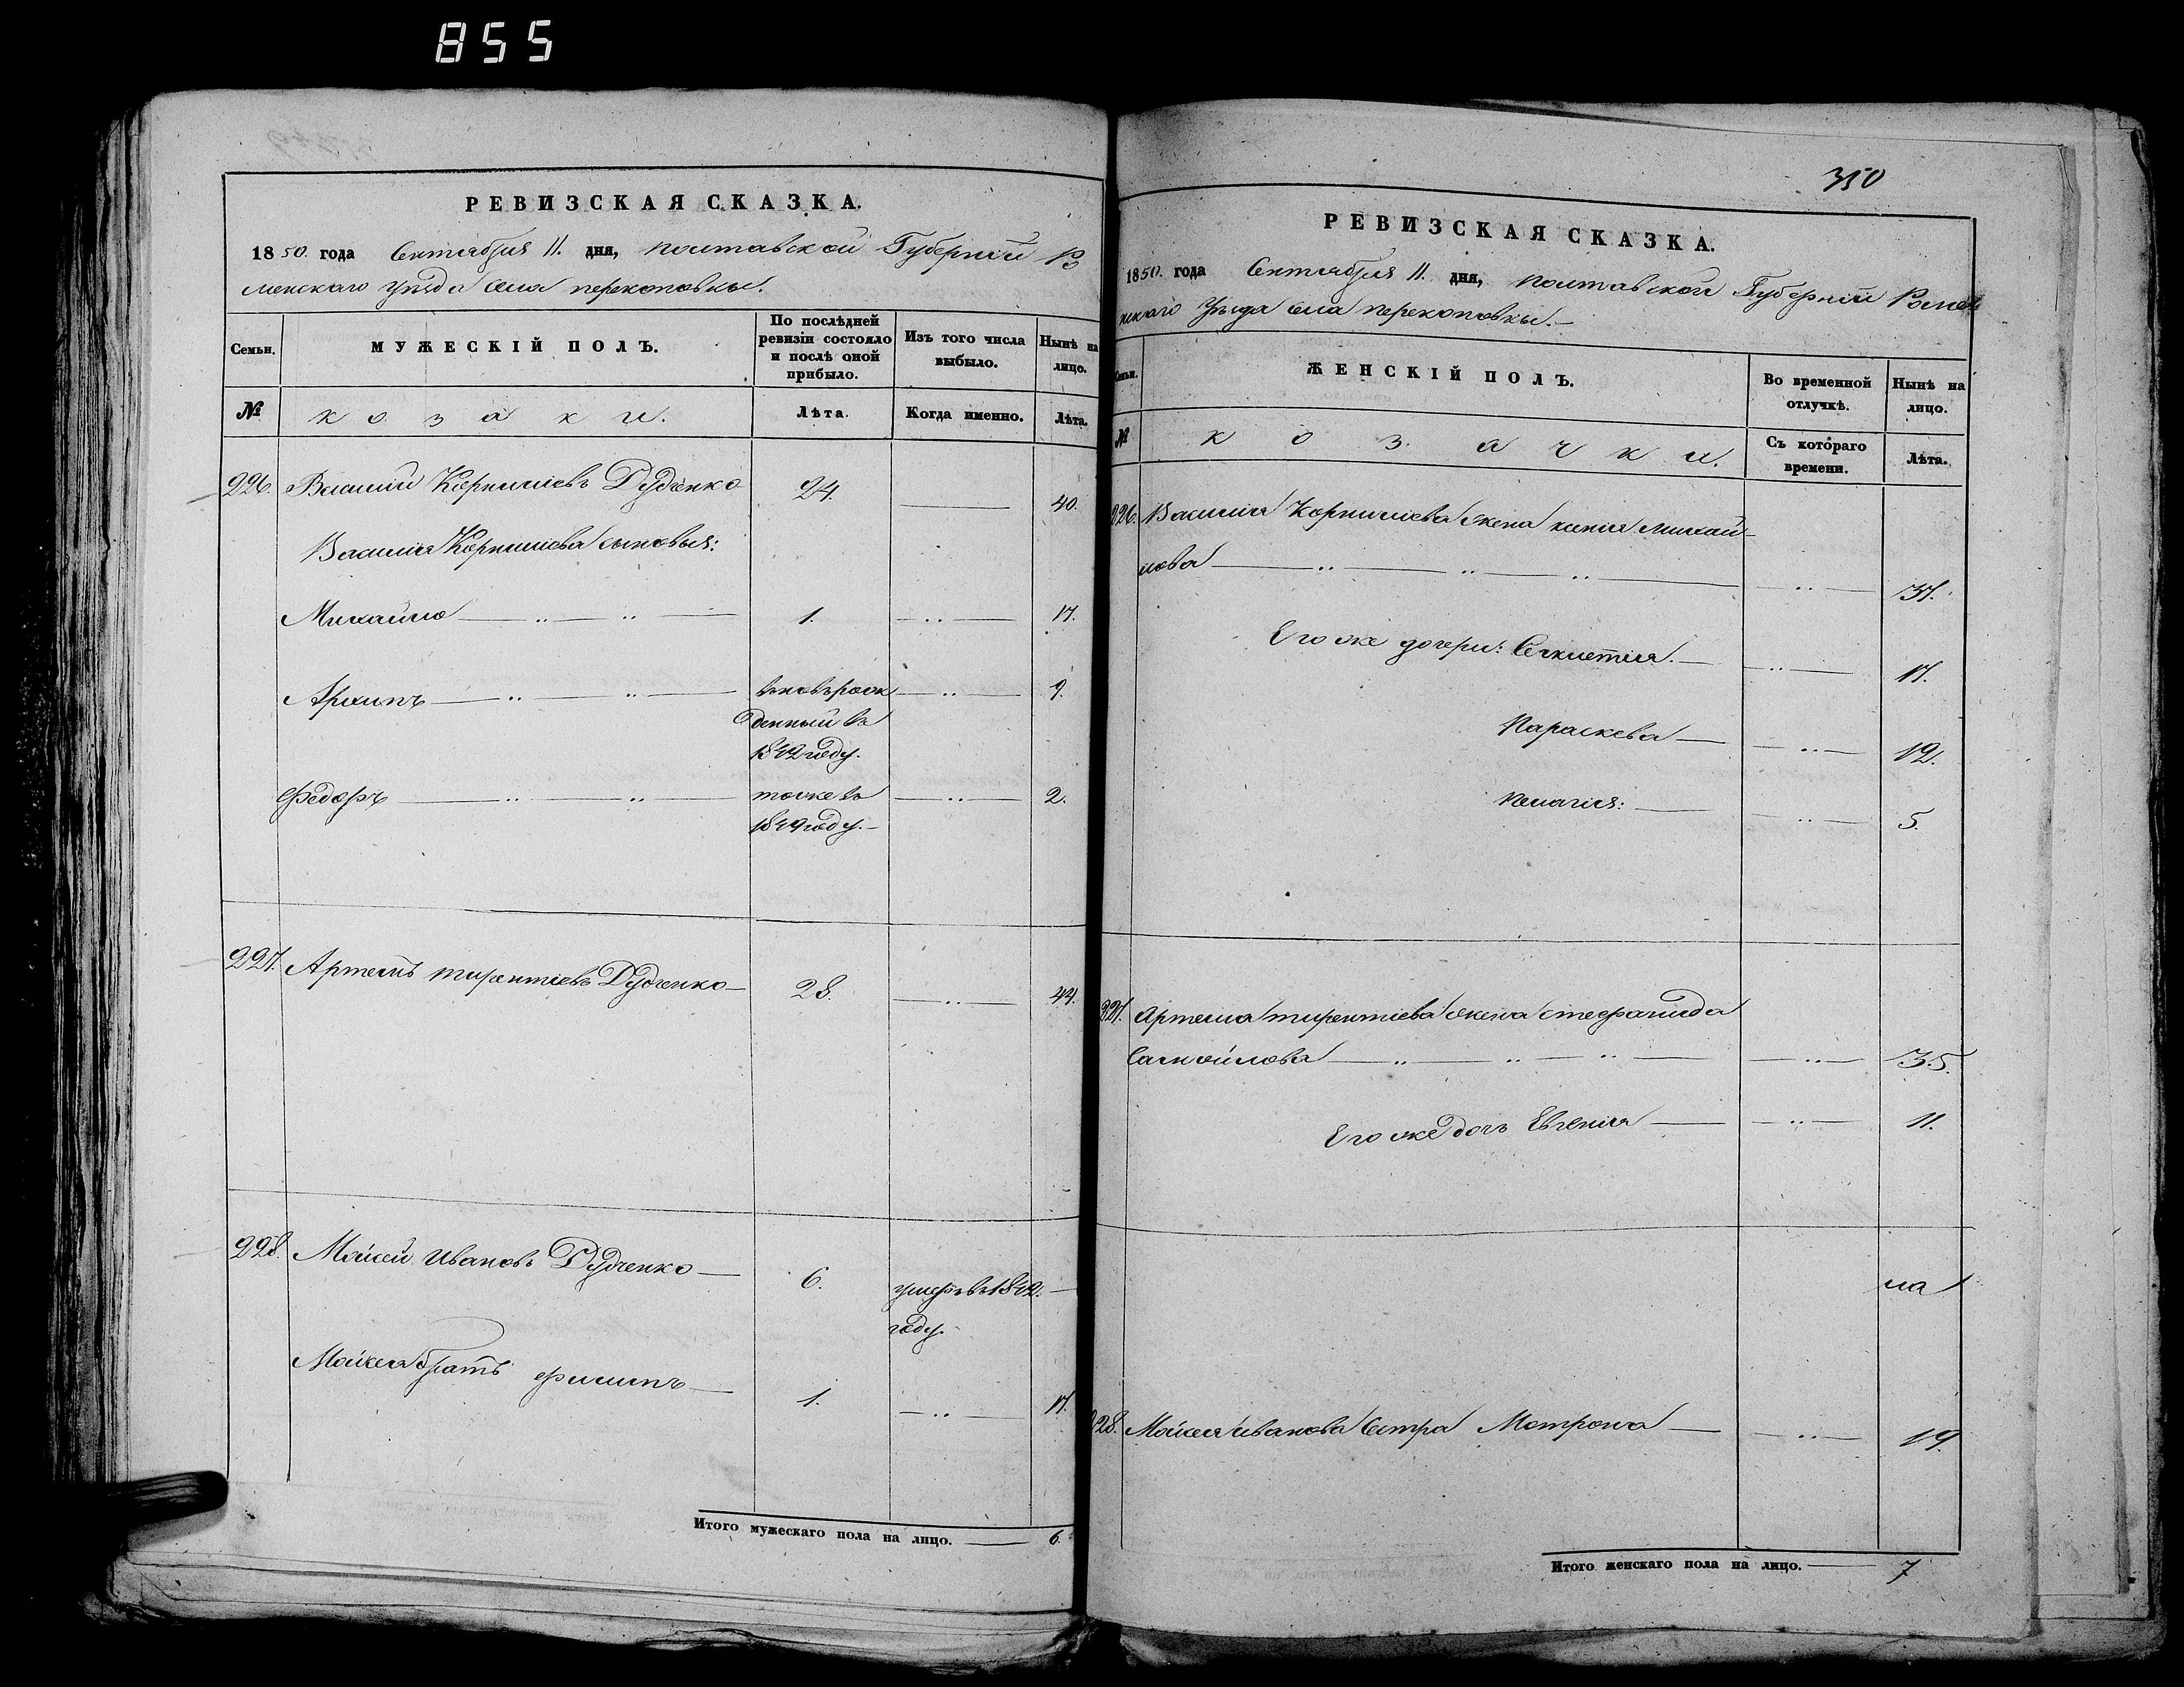 855
РЕВИЗСКАЯ СКАЗКА.
1850. года Сентября 11. дня, Полтавской Губерніи Ро
менскаго уезда села перекоповки.
Семьи.
МУЖЕСКІЙ ПОЛЪ.
По послѣдней ревизіи состояло и послѣ оной прибыло.
Изъ того числа выбыло.
Нынѣ на лицо.
№
козаки.
Лѣта.
Когда именно.
Лѣта.
226. Василій Корниліевъ Дудченко 24. 40.
Василія Корниліева сыновья:
Михайло 1. 17.
Архипъ вновь рож 9.
денный въ
1842 году.
Федоръ тоже въ 2.
1849 году.
227. Артемъ тирентіевъ Дудченко 28. 44.
228. Мойсей Ивановъ Дудченко 6. умеръ въ 1842.
году.
Мойсея братъ филипъ 1. 17.
Итого мужескаго пола на лицо. 6.
350
РЕВИЗСКАЯ СКАЗКА.
1850. года Сентября 11. дня, Полтавской Губерніи Ромен
скаго уезда села перекоповки.
Семьи.
ЖЕНСКІЙ ПОЛЪ.
Во временной отлучкѣ.
Нынѣ на лицо.
№
козачки.
Съ котораго времени.
Лѣта.
226. Василія Корниліева жена ксенія михай-
лова 37.
Его же дочери: 17.
Параскева 12.
пелагія: 5.
227. Артема тирентіева жена стефанида
Самойлова 35.
Его же дочь Евгенія 11.
на
228. Мойсея иванова Сестра Мотрона 19.
Итого женскаго пола на лицо. 7